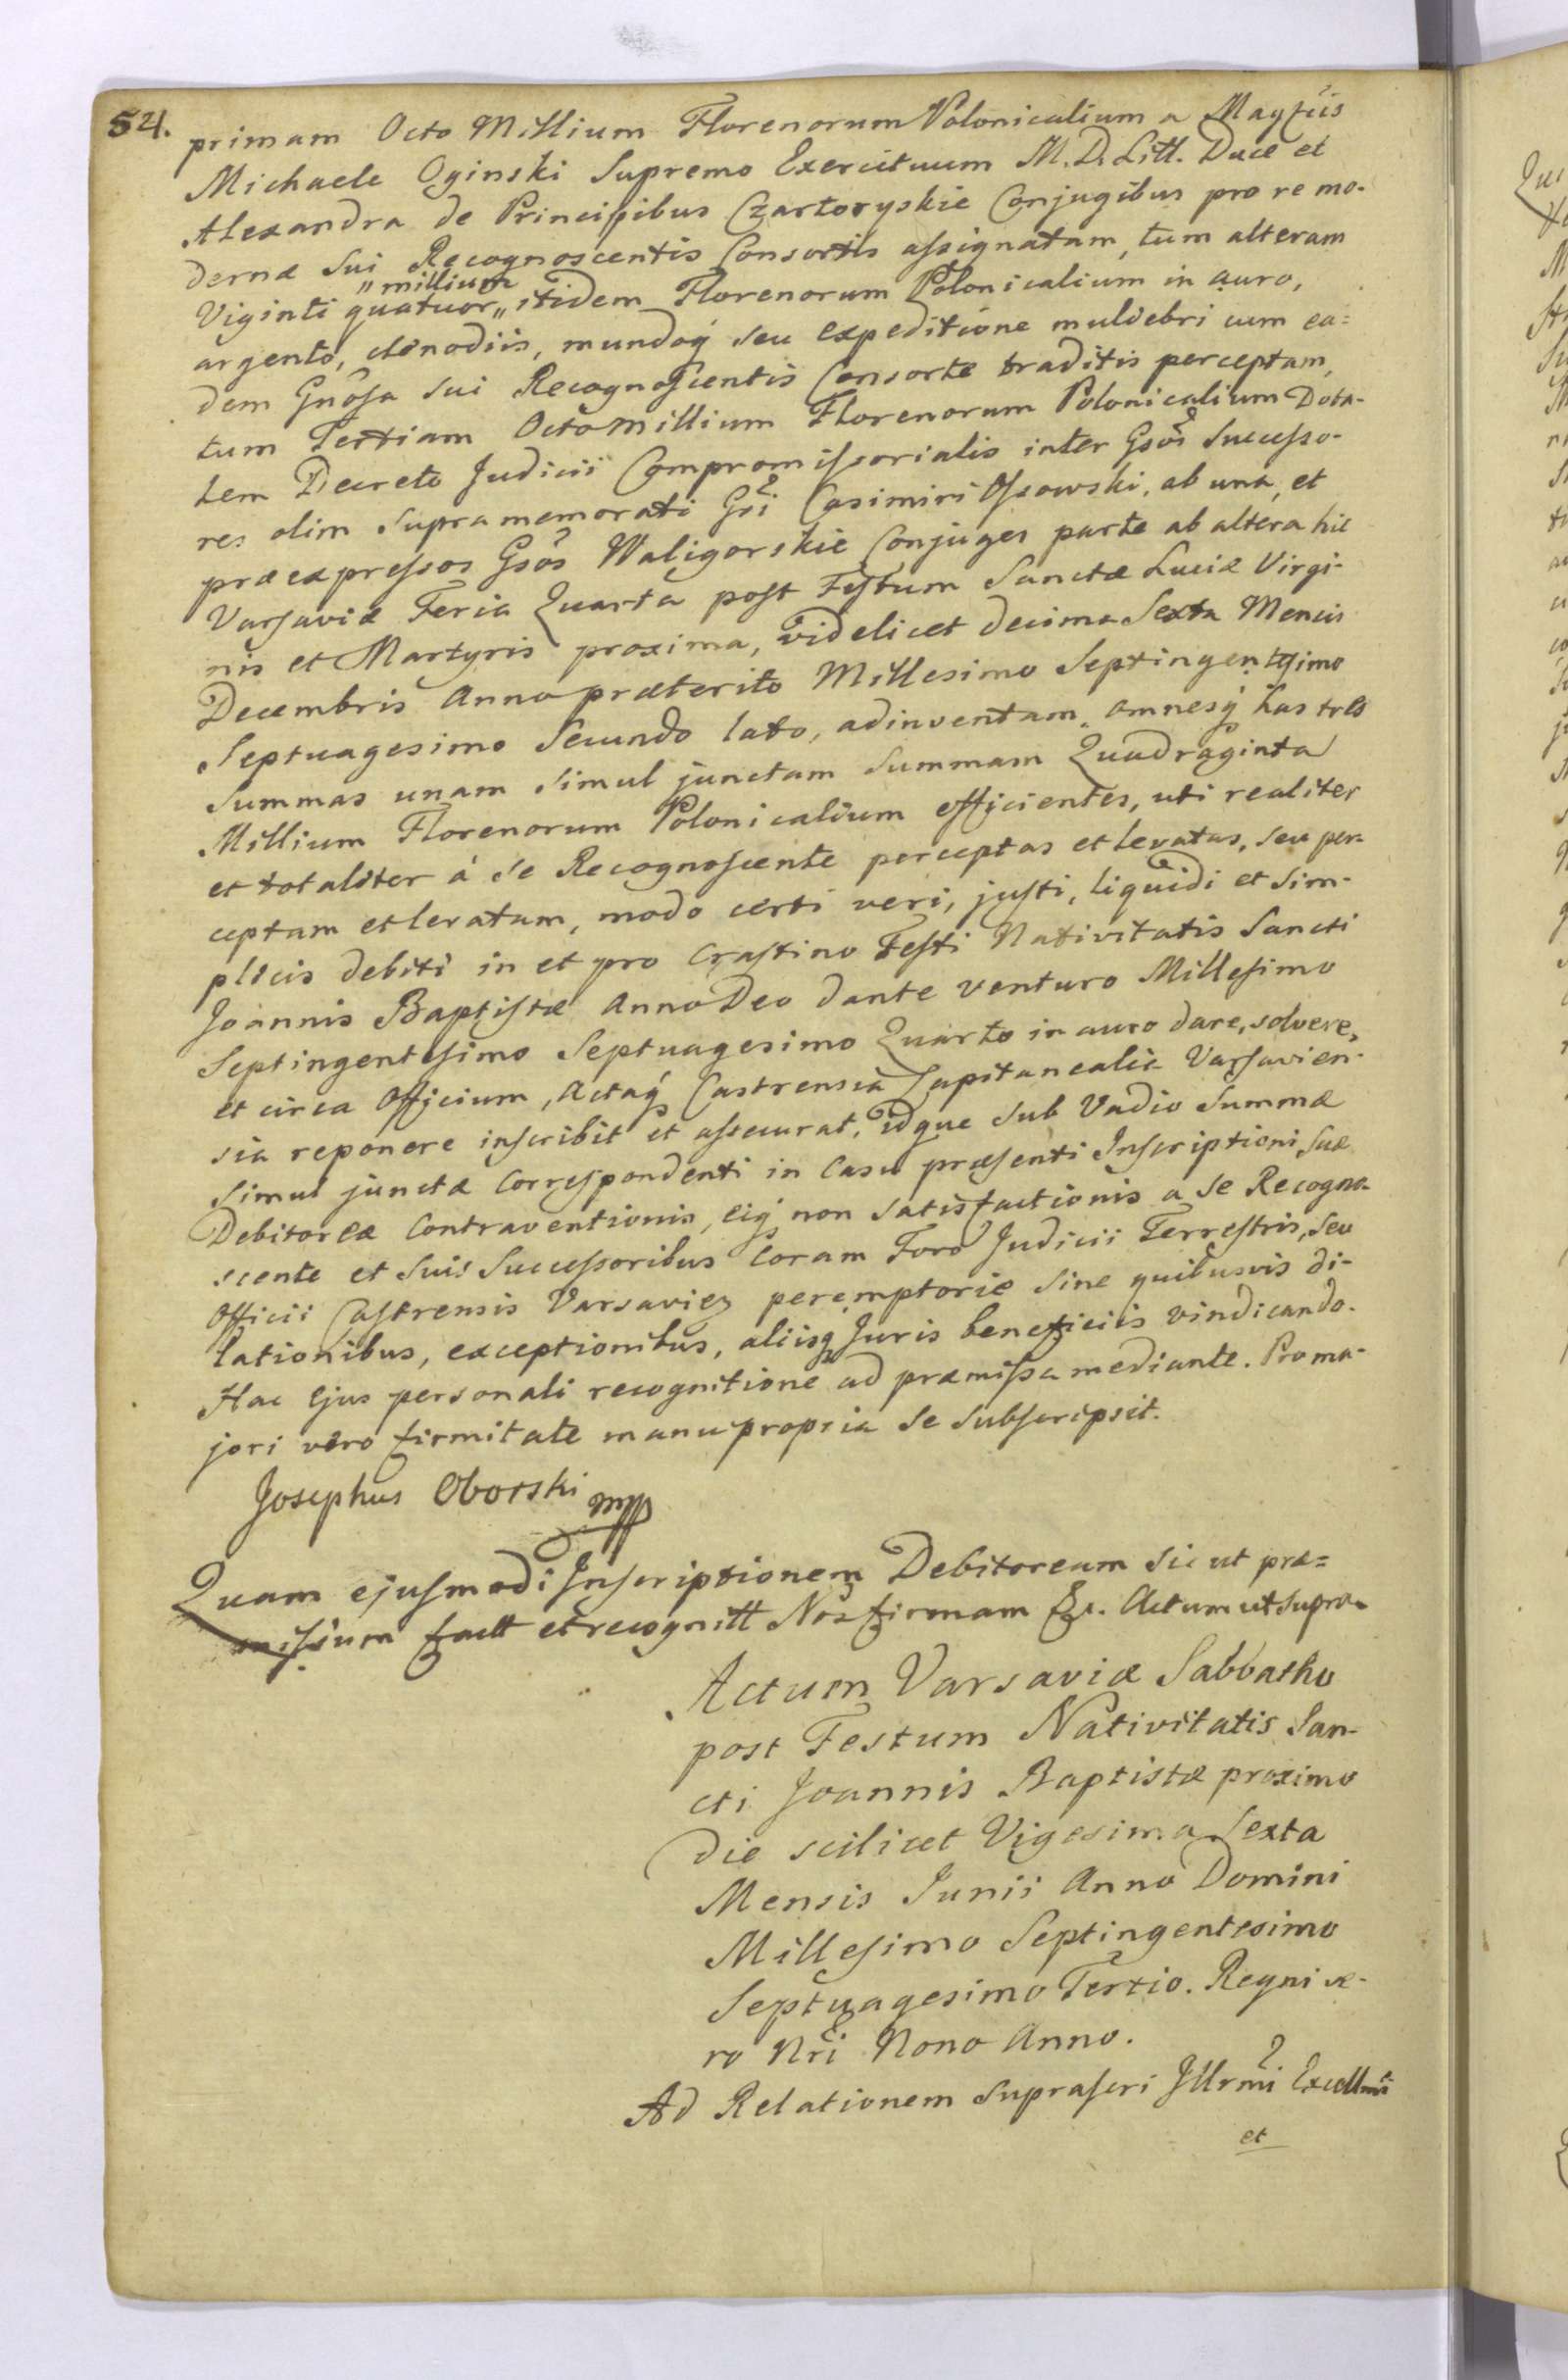 54.
primam Octo Millium Florenorum Polonicalium a Magfcis
Michaele Oginski Supremo Exercituum M. D. Litt. Duce et
Alexandra de Principibus Czartoryskie Conjugibus pro re mo-
dernæ sui Recognoscentis Consortis assignatam, tum alteram
Viginti quatuor „millium„ itidem Florenorum Polonicalium in auro,
argento, clenodiis, mundoq́ seu expeditione muliebri cum ea=
dem Gnosa sui Recognoscentis Consorte traditis perceptam,
tum Tertiam Octo Millium Florenorum Polonicalium Dota-
lem Decreto Judicii Compromissorialis inter Gsos Successo-
res olim supramemorati Gsi Casimiri Ossowski, ab una, et
præexpressos Gsos Waligorskie Conjuges parte ab altera hic
Varsaviæ Feria Quarta post Festum Sanctæ Luciæ Virgi-
nis et Martyris proxima, videlicet decima Sexta Mensis
Decembris Anno præterito Millesimo Septingentesimo
Septuagesimo Secundo lato, adinventam, omnesq́ has tres
Summas unam simul junctam Summam Quadraginta
Millium Florenorum Polonicalium efficientes, uti realiter
et totaliter á se Recognoscente perceptas et levatas, seu per-
ceptam et levatam, modo certi veri, justi, liquidi et sim-
plicis debiti in et pro Crastino Festi Nativitatis Sancti
Joannis Baptistæ Anno Deo dante venturo Millesimo
Septingentesimo Septuagesimo Quarto in auro dare, solvere,
et circa Officium, Actaq́ Castrensia Capitanealia Varsavien-
sia reponere inscribit et assecurat, idque sub Vadio Summæ
simul junctæ Correspondenti in Casu præsenti Inscriptioni suæ
Debitoreæ Contraventionis, eiq́ non satisfactionis a se Recogno-
scente et suis Successoribus Coram Foro Judicii Terrestris, seu
Officii Castrensis Varsavien peremptorie sine quibusvis di-
lationibus, exceptionibus, aliisq́ Juris beneficiis vindicando.
Hac Ejus personali recognitione ad præmissa mediante. Pro ma-
jori vero firmitate manu propria se subscripsit.
Josephus Oborski mpp
Quam ejusmodi Inscriptionem Debitoream sic ut præ=
missum fact et recognitt Nos firmam &c. Actum ut supra.
Actum Varsaviæ Sabbatho
post Festum Nativitatis San-
cti Joannis Baptistæ proximo
die scilicet Vigesima Sexta
Mensis Junii Anno Domini
Millesimo Septingentesimo
Septuagesimo Tertio. Regni ve-
ro Nri Nono Anno.
Ad Relationem suprascri Jllrmi Excellmi
et